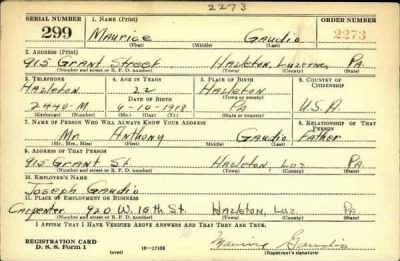 2273
SERIAL NUMBER 1. NAME (Print) ORDER NUMBER
299 Maurice Gaudio 2273
(First) (Middle) (Last)
2. ADDRESS (Print)
915 Grant Street Hazleton, Luzerne, Pa
(Number and street or R. F. D. number) (Town) (County) (State)
3. TELEPHONE 4. AGE IN YEARS 5. PLACE OF BIRTH 6. COUNTRY OF CITIZENSHIP
Hazleton 22 Hazleton
DATE OF BIRTH (Town or county)
2440-M 9-10-1918 Pa U.S.A.
(Exchange) (Number) (Mo.) (Day) (Yr.) (State or country)
7. NAME OF PERSON WHO WILL ALWAYS KNOW YOUR ADDRESS 8. RELATIONSHIP OF THAT PERSON
Mr. Anthony Gaudio Father
(Mr., Mrs., Miss) (First) (Middle) (Last)
9. ADDRESS OF THAT PERSON
915 Grant St. Hazleton, Luz Pa.
(Number and street or R. F. D. number) (Town) (County) (State)
10. EMPLOYER'S NAME
Joseph Gaudio
11. PLACE OF EMPLOYMENT OR BUSINESS
Carpenter 920 W. 15th St. Hazleton, Luz Pa.
(Number and street or R. F. D. number) (Town) (County) (State)
I AFFIRM THAT I HAVE VERIFIED ABOVE ANSWERS AND THAT THEY ARE TRUE.
REGISTRATION CARD
D. S. S. Form 1 (over) Maurice Gaudio
(Registrant's signature)